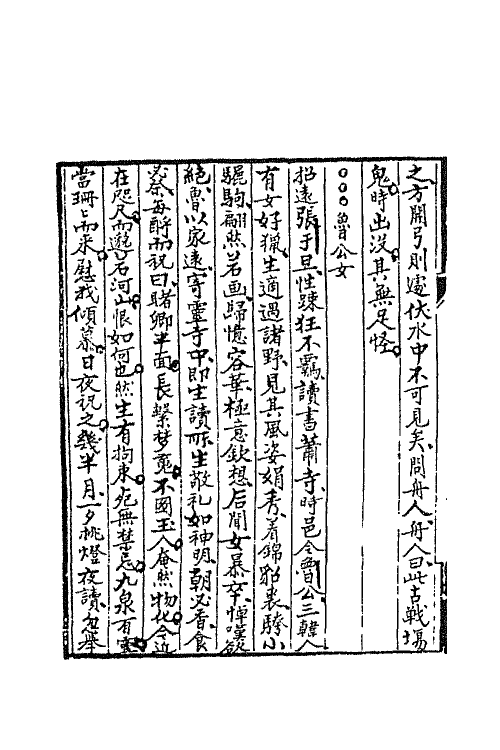 之方開弓則遽伏水中不可見矣問舟人舟人曰此古戰場
鬼時出沒其無足怪
○○○魯公女
招遠張于旦性疎狂不羈讀書蕭寺時邑令魯公三韓人
有女好獵生適遇諸野見其風姿娟秀着錦貂裘跨小
驪駒翩然若画歸憶容華極意欽想后聞女暴卒悼嘆欲
絕魯以家遠寄靈寺中即生讀所生敬礼如神明朝必香食
必祭每酹而祝曰睹卿半面長繫梦寃不圖玉人奄然物化今近
在咫尺而邈若河山恨如何也然生有拘束死無禁忌九泉有靈
當珊珊而來慰我傾慕日夜祝之幾半月一夕挑燈夜讀忽舉